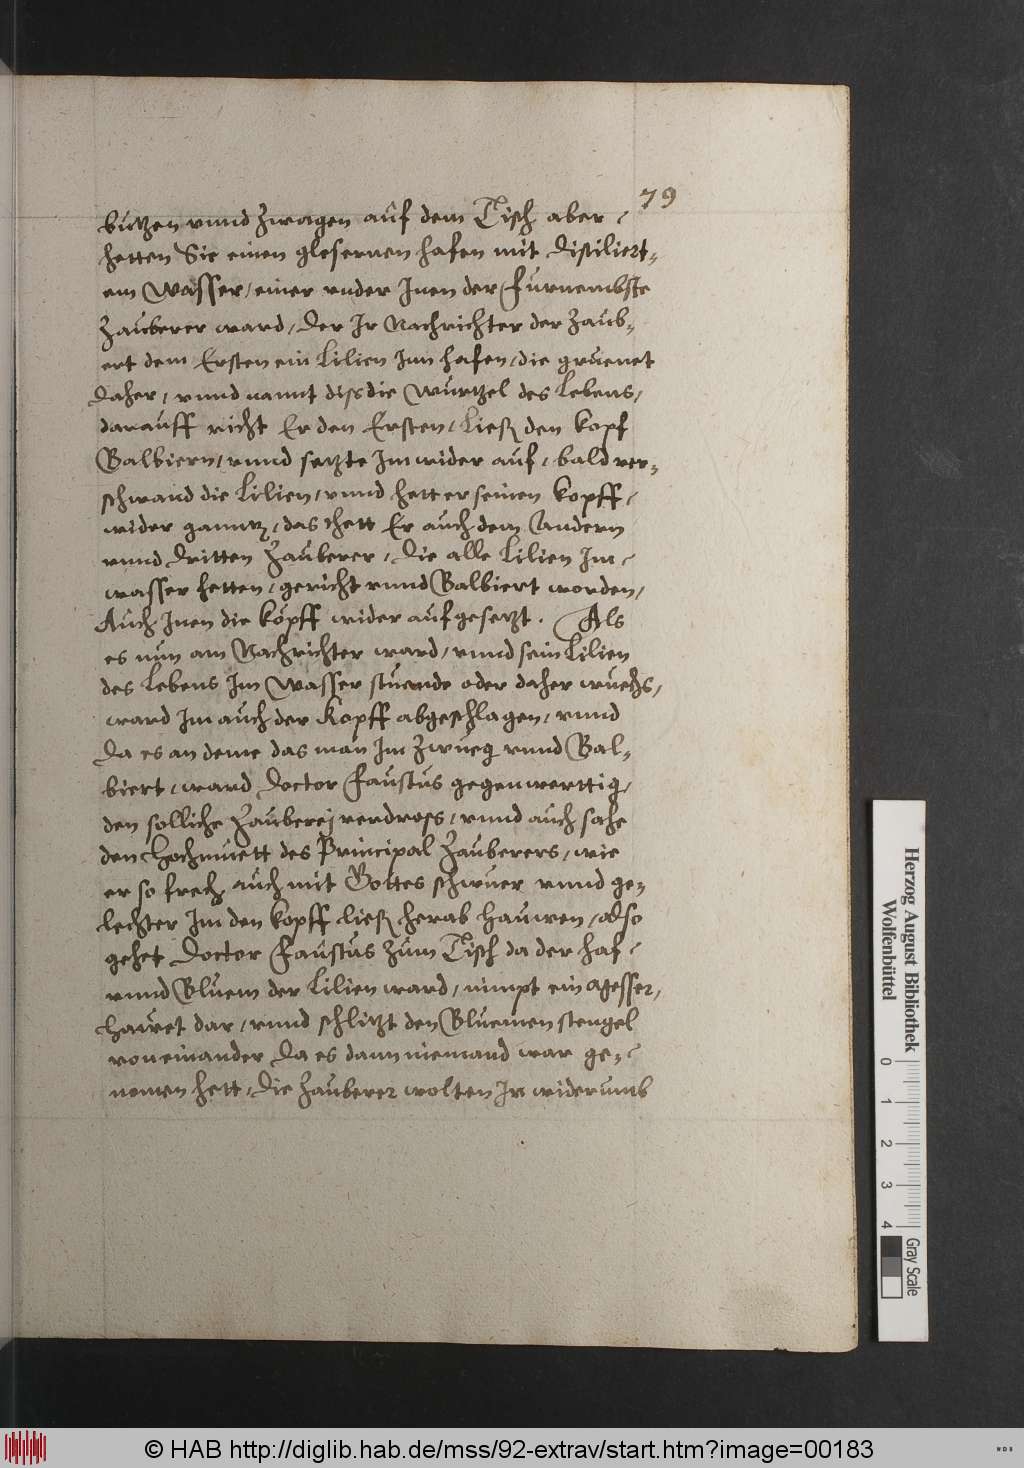 79
butzen vnnd zwagen auf dem Tisch aber
hetten Sie einen glesernen hafen mit distiliert-
em Wasser, einer vnder Inen der Furnembste
Zauberer ward, der Ir Nachrichter der Zaub-
ert dem Ersten ein Lilien Inn hafen, die gruenet
daher, vnnd nannt diss die Wurtzel des Lebens,
darauff richt Er den Ersten, Ließ den Kopf
Balbiern, vnnd setzte Im wider auf, bald ver-
schwand die Lilien, vnnd hett er seinen Kopff,
wider ganntz, das thett Er auch dem Andern
vnnd dritten Zauberer, die alle Lilien Im
wasser hetten, gericht vnnd Balbiert worden,
Auch Inen die köpff wider aufgesetzt. Als
es nun am Nachrichter ward, vnnd sein Lilien
des Lebens Im Wasser stuende oder daher wuechs,
ward Im auch der Kopff abgeschlagen, vnnd
da es an deme das man Im zwueg vnnd Bal-
biert, ward Doctor Faustus gegenwerttig,
den solliche Zauberej verdross, vnnd auch sahe
den Hochmuett des Principal Zauberers, wie
er so frech auch mit Gottes schwuer vnnd ge-
lechter Im den Kopff ließ herab Hauwen, also
gehet Doctor Faustus zum Tisch da der haf-
vnnd Bluem der Lilien ward, nimpt ein Messer,
Hawet dar, vnnd schlitzt den Bluemen stengel
voneinander da es dann niemand war ge-
nomen hett, die Zauberer wolten In widerumb
Herzog August Bibliothek
Wolfenbüttel
0 1 2 3 4
Gray Scale
© HAB http://diglib.hab.de/mss/92-extrav/start.htm?image=00183
WDB